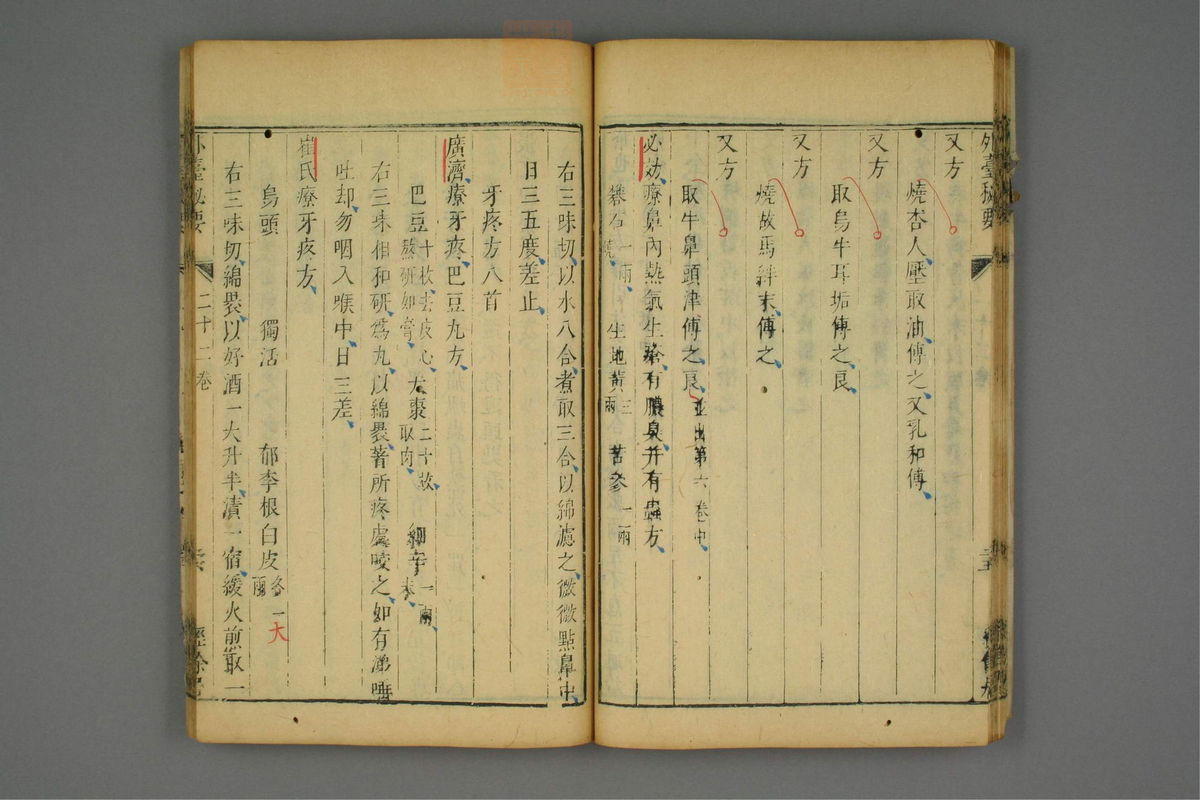 外臺秘要
又方
燒杏人壓取油傅之又乳和傅
又方
取烏牛耳垢傅之良
又方
燒故馬絆末傅之
又方
取牛鼻頭津傅之良並出第六卷中
必効療鼻內熱氣生瘡有膿臭并有蟲方
礬石一兩燒 生地黃三兩 苦參一兩
右三味切以水八合煮取三合以綿濾之微微點鼻中
日三五度差止
牙疼方八首
廣濟療牙疼巴豆丸方
巴豆十枚去皮心熬研如膏 大棗二十枚取肉 細辛一兩末
右三味相和研為丸以綿裹著所疼處咬之如有涕唾
吐却勿咽入喉中日三差
崔氏療牙疼方
烏頭 獨活 郁李根白皮各一兩
大
右三味切綿裹以好酒一大升半漬一宿緩火煎取一
外臺秘要 二十二卷
經餘居